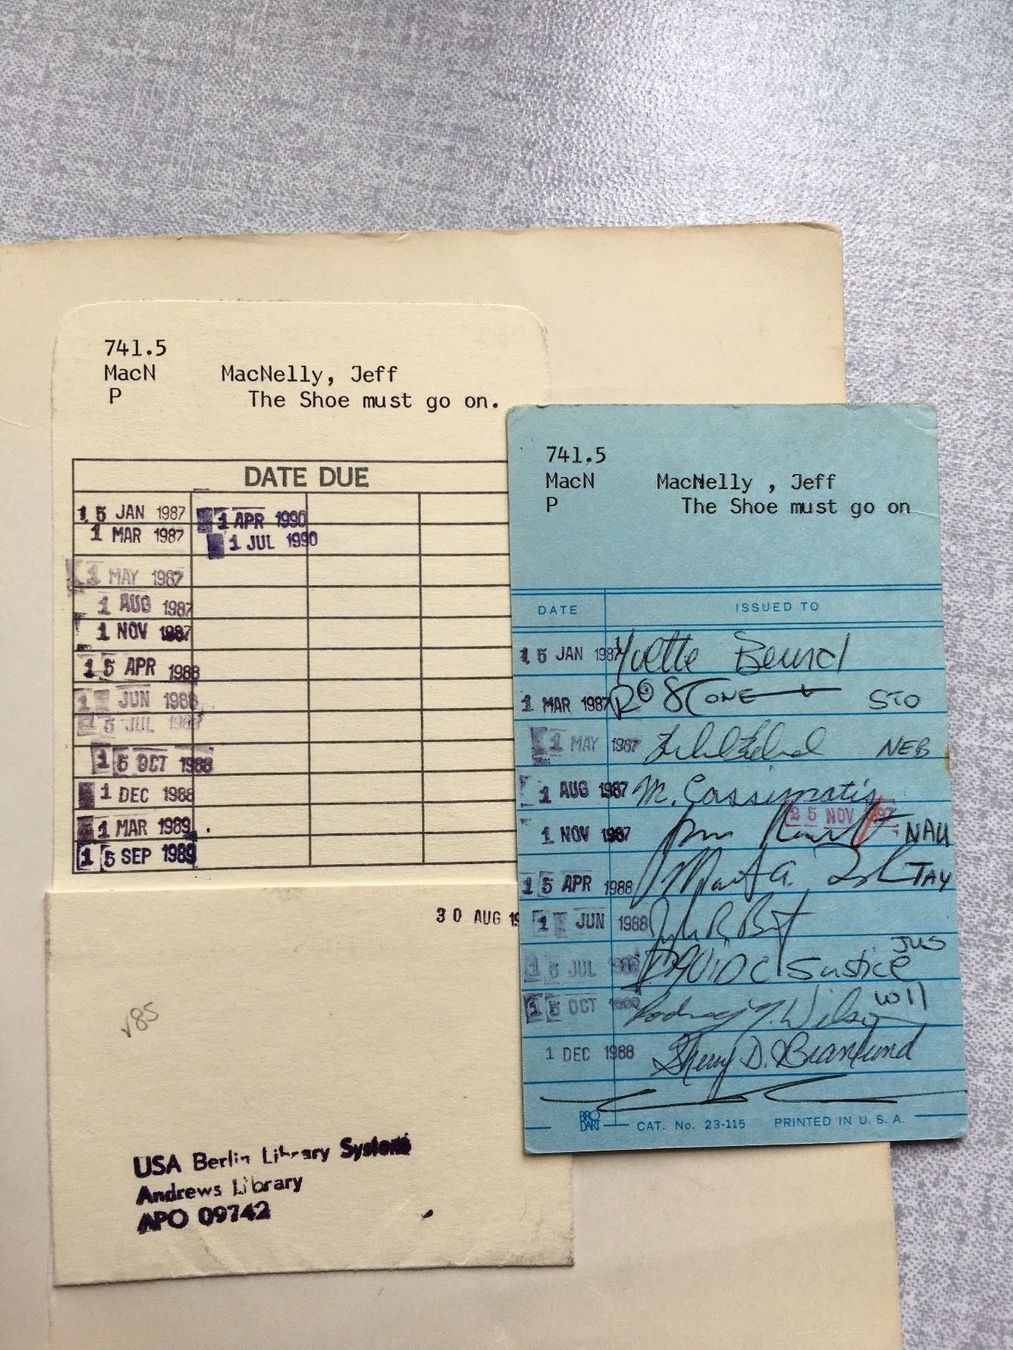 741.5
MacN
MacNelly, Jeff
P
The Shoe must go on.
DATE DUE
15 JAN 1987
1 MAR 1987
1 MAY 1987
1 AUG 1987
1 NOV 1987
15 APR 1988
1 JUN 1988
15 JUL 198
15 OCT 1988
1 DEC 1988
1 MAR 1989
15 SEP 1989
1 APR 1990
1 JUL 1990
30 AUG 19
√85
USA Berlin Library System
Andrews Library
APO 09742
741.5
MacN
MacNelly , Jeff
P
The Shoe must go on
DATE ISSUED TO
15 JAN 1987 Yvette
1 MAR 1987 STO
1 MAY 1987 NEB
1 AUG 1987 M. Gassimatis
25 NOV
1 NOV 1987 NAU
15 APR 1988 TAY
1 JUN 1988
JUS
15 JUL DAVID C Justice
15 OCT Rodney Wilson Wil
1 DEC 1988 Sherry D.
BRO DART CAT. No. 23-115 PRINTED IN U.S.A.